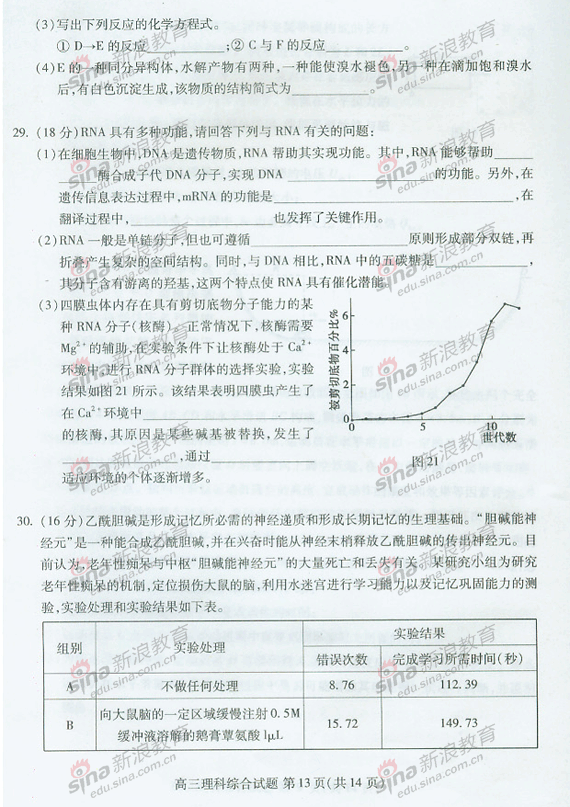 (3)写出下列反应的化学方程式。
① D→E 的反应____________;② C 与 F 的反应____________。
(4)E 的一种同分异构体,水解产物有两种,一种能使溴水褪色,另一种在滴加饱和溴水
后,有白色沉淀生成,该物质的结构简式为____________。
29. (18 分)RNA 具有多种功能,请回答下列与 RNA 有关的问题:
(1)在细胞生物中,DNA 是遗传物质,RNA 帮助其实现功能。其中,RNA 能够帮助______
______酶合成子代 DNA 分子,实现 DNA____________________的功能。另外,在
遗传信息表达过程中,mRNA 的功能是______________________________,在
翻译过程中,__________________也发挥了关键作用。
(2)RNA 一般是单链分子,但也可遵循____________________原则形成部分双链,再
折叠产生复杂的空间结构。同时,与 DNA 相比,RNA 中的五碳糖是____________,
其分子含有游离的羟基,这两个特点使 RNA 具有催化潜能。
(3)四膜虫体内存在具有剪切底物分子能力的某
种 RNA 分子(核酶)——正常情况下,核酶需要
Mg²⁺ 的辅助,在实验条件下让核酶处于 Ca²⁺
环境中,进行 RNA 分子群体的选择实验,实验
结果如图 21 所示。该结果表明四膜虫产生了
在 Ca²⁺环境中
的核酶,其原因是某些碱基被替换,发生了
______________,通过______________
适应环境的个体逐渐增多。
被剪切底物百分比%
6
4
2
0
0
5
10
世代数
图 21
30. (16 分)乙酰胆碱是形成记忆所必需的神经递质和形成长期记忆的生理基础。“胆碱能神
经元”是一种能合成乙酰胆碱,并在兴奋时能从神经末梢释放乙酰胆碱的传出神经元。目
前认为,老年性痴呆与中枢“胆碱能神经元”的大量死亡和丢失有关。某研究小组为研究
老年性痴呆的机制,定位损伤大鼠的脑,利用水迷宫进行学习能力以及记忆巩固能力的测
验,实验处理和实验结果如下表。
组别 实验处理 实验结果
错误次数 完成学习所需时间(秒)
A 不做任何处理 8.76 112.39
B 向大鼠脑的一定区域缓慢注射 0.5M
缓冲液溶解的鹅膏蕈氨酸 1μL 15.72 149.73
高三理科综合试题 第 13 页(共 14 页)
sina 新浪教育
edu.sina.com.cn